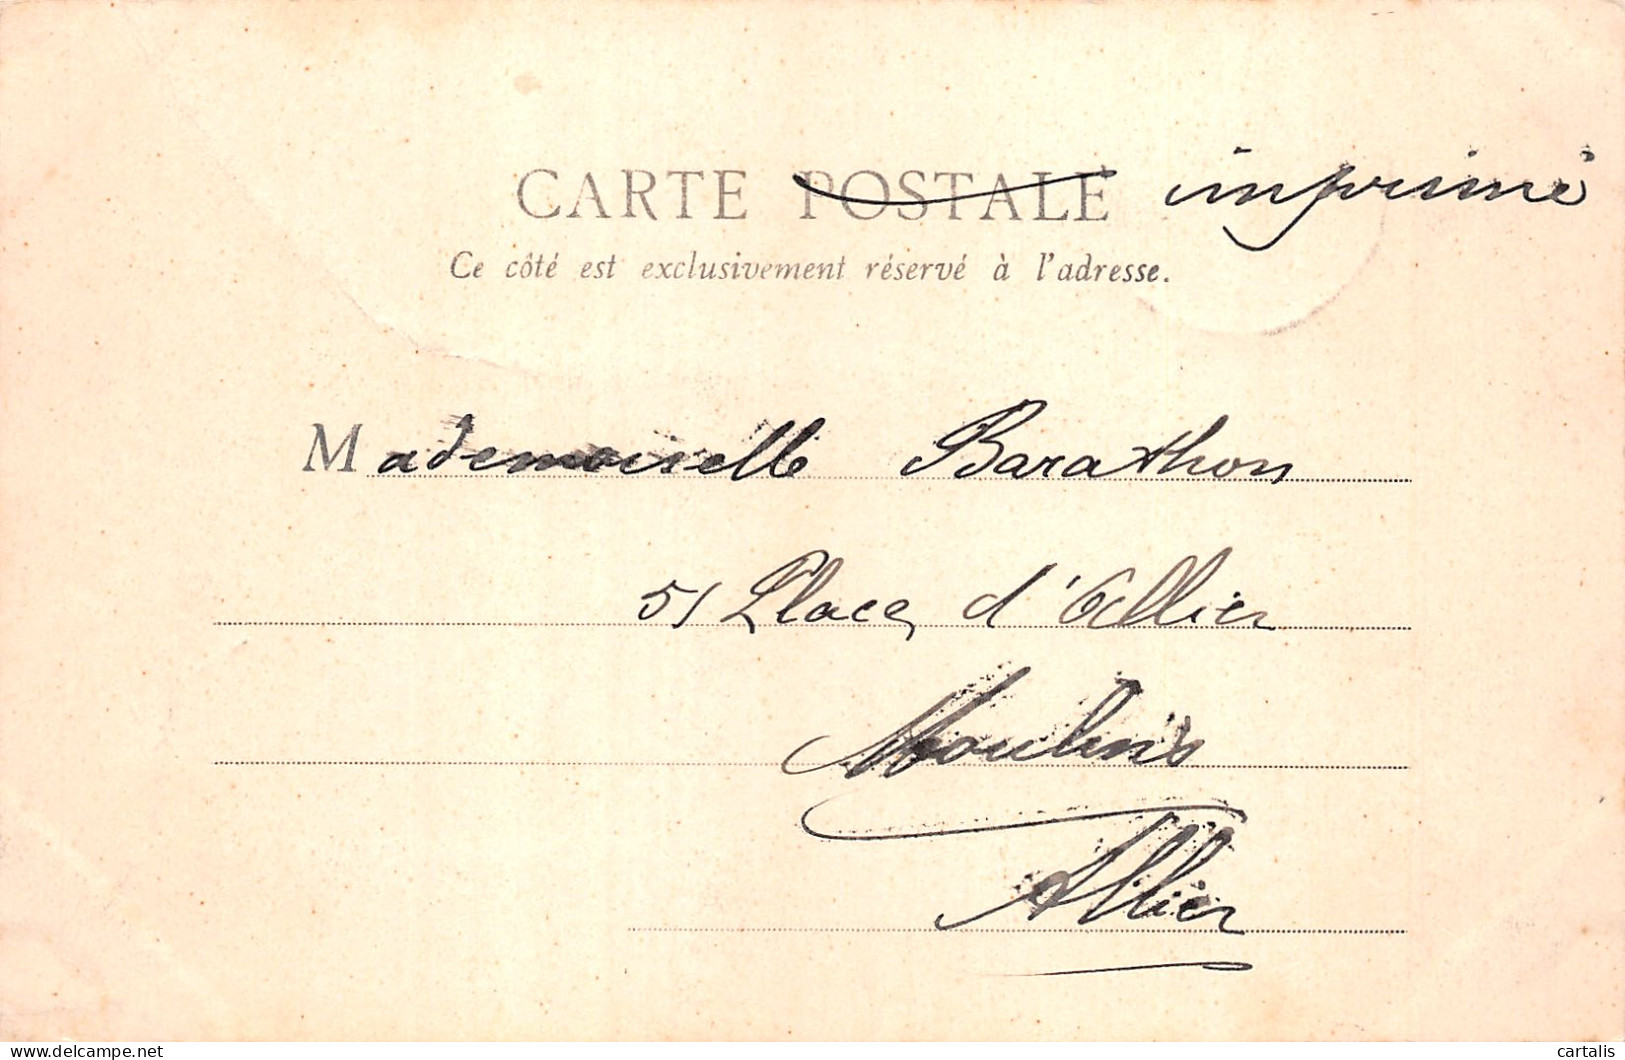 CARTE POSTALE imprimé
Ce côté est exclusivement réservé à l'adresse.
Mademoiselle Barathon
51 Place d'Allier
Moulins
Allier
delcampe.net
cartalis